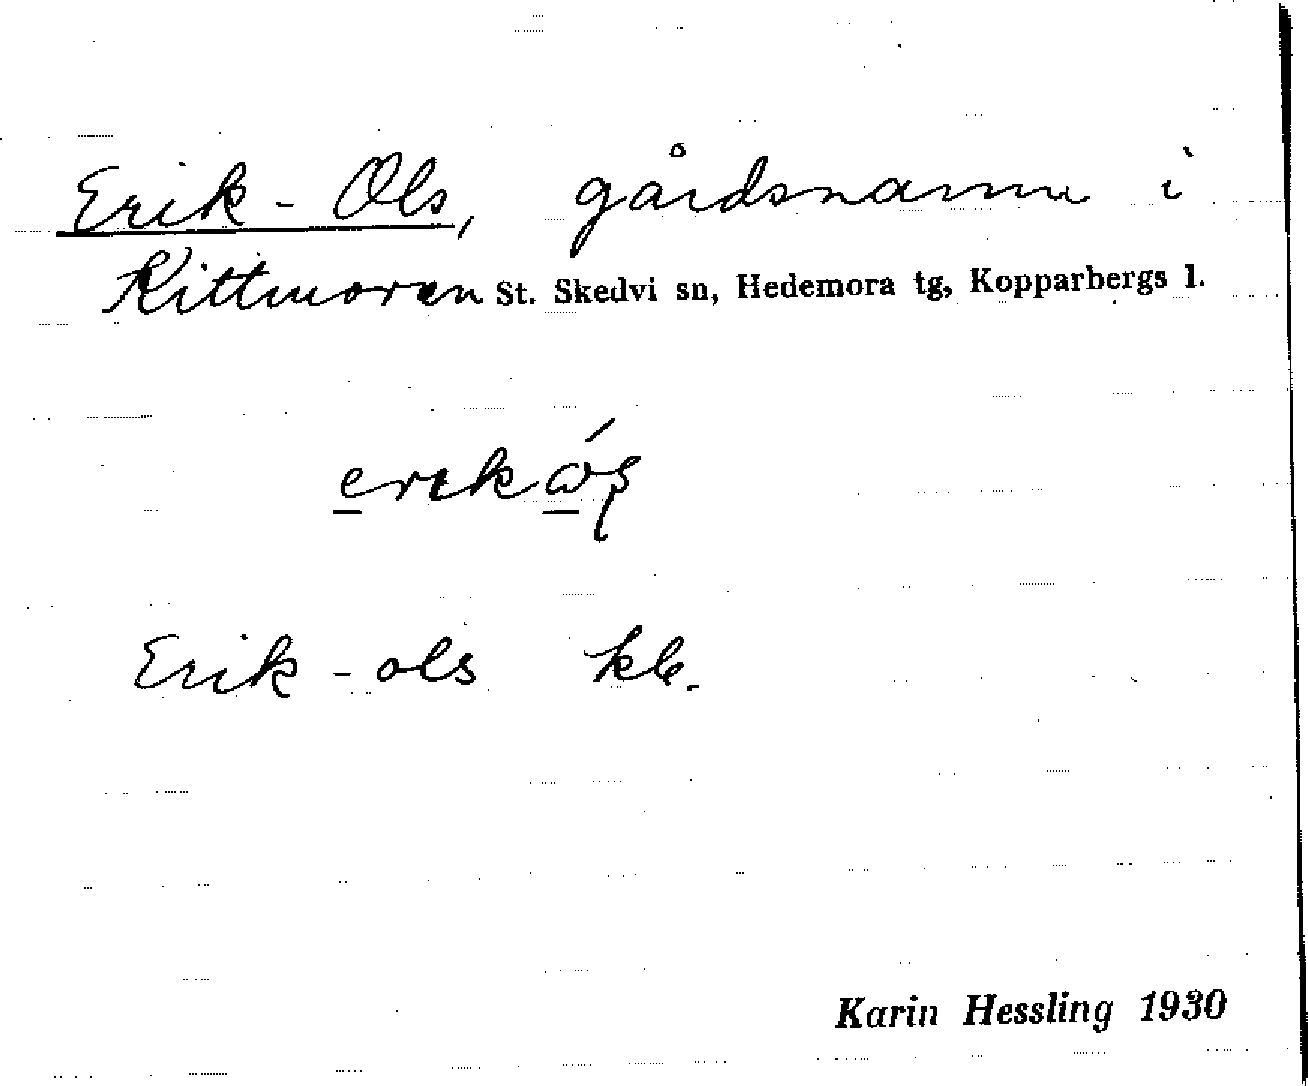 Erik-Ols, gårdsnamn i
Kittmoren St. Skedvi sn, Hedemora tg, Kopparbergs l.
Erik-ols kb.
Karin Hessling 1930